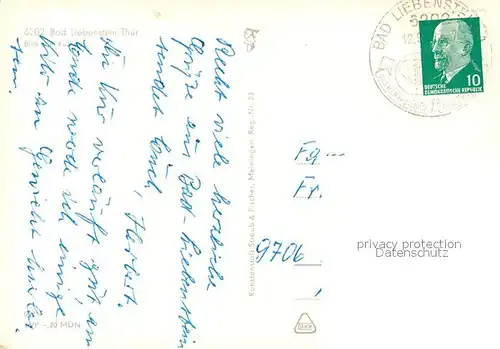 6202 Bad Liebenstein Thür
Recht viele herzliche
Grüße aus Bad-Liebenstein
sendet Euch, Herbert.
Die Kur verläuft gut, am
Ende werde ich einige
Kilo an Gewicht hinter
MDN
Konstanstalt Straub & Fischer, Meiningen, Reg.-Nr. 23
BAD LIEBENSTEIN
6202
DEUTSCHE
DEMOKRATISCHE REPUBLIK
10
Fa
Fr.
9706
privacy protection
Datenschutz